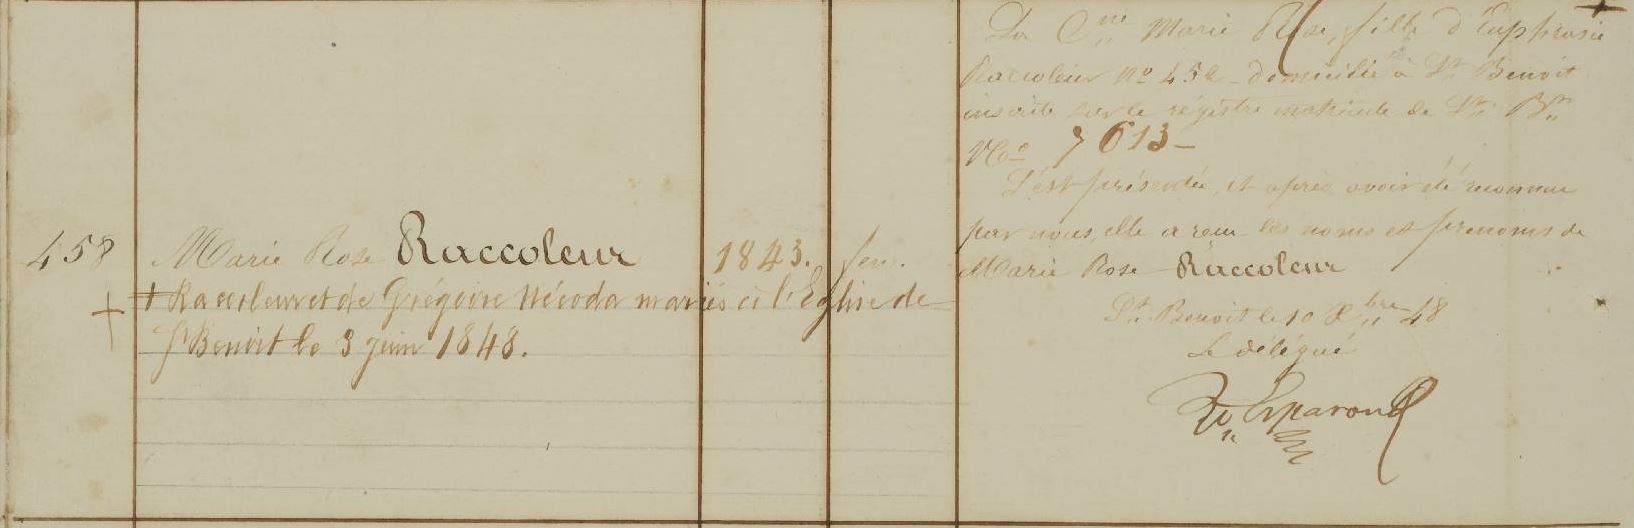 458
Marie Rose Raccoleur
1843.
fem.
+ Raccoleur et de Grégoire Nécoda mariés à l'Eglise de
St Benoit le 3 juin 1848.
La Cne Marie Rose, fille d'Euphrasie
Raccoleur no 452 - domiciliée à St Benoit
inscrite sur le régistre matricule de St Bt
No 7613 -
S'est présentée, et après avoir été reconnue
par nous, elle a reçu les noms et prénoms de
Marie Rose Raccoleur
St Benoit le 10 Xbre 48
Le délégué